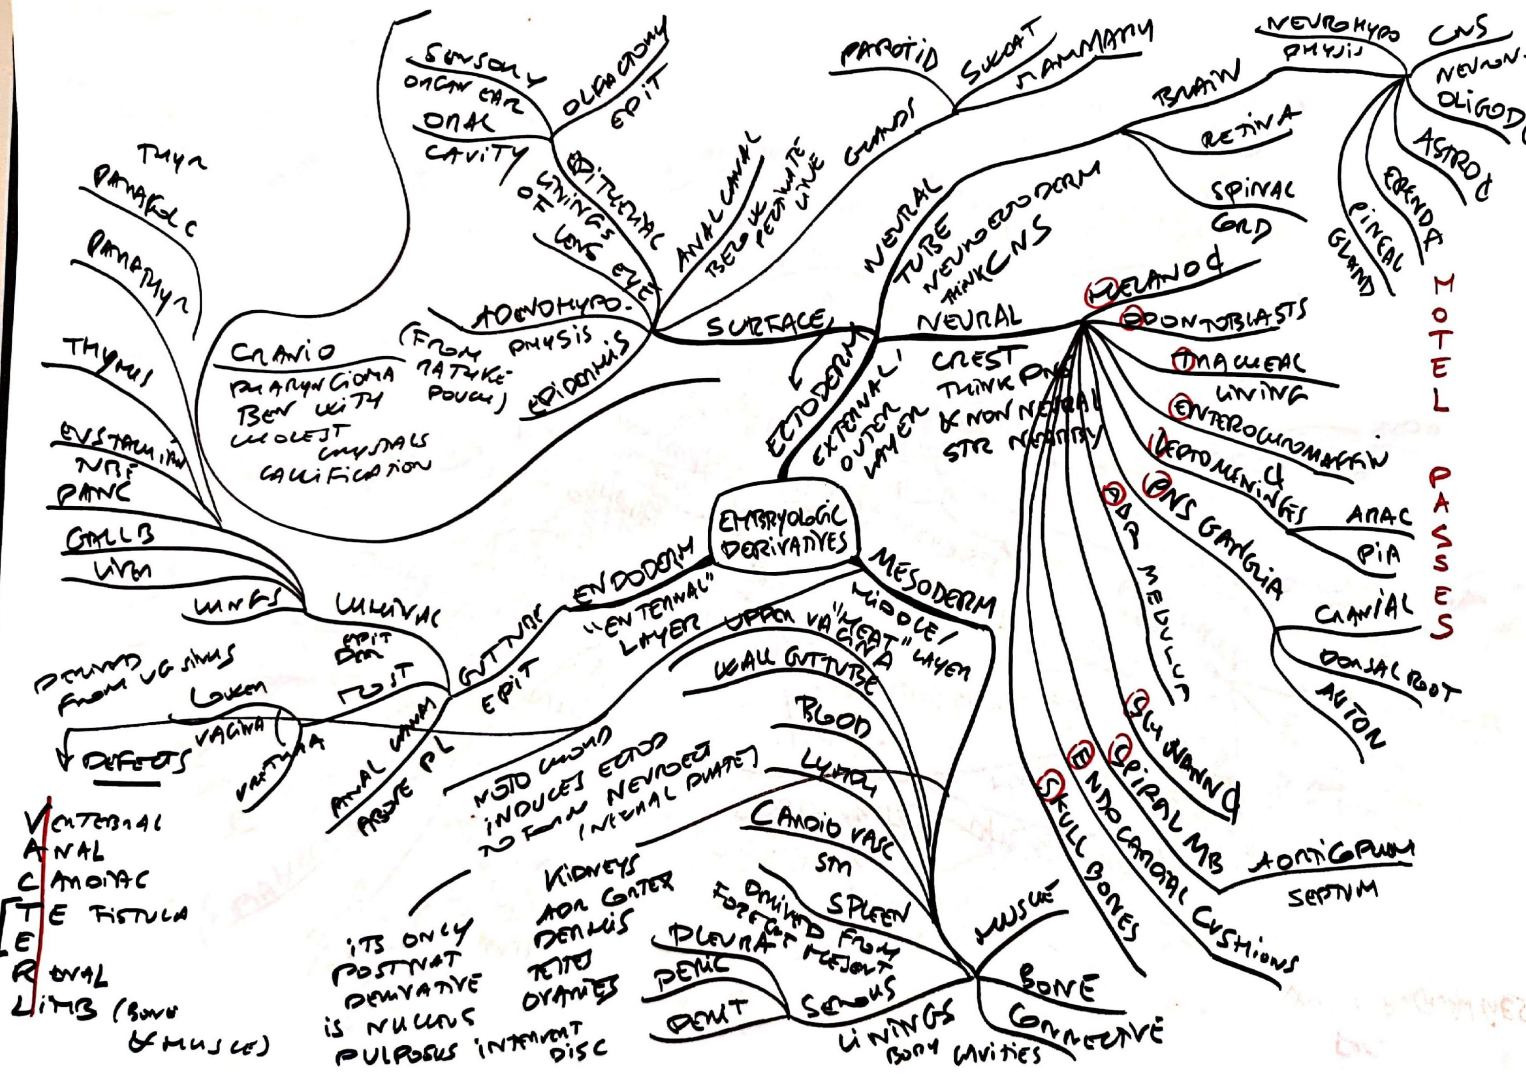 EMBRYOLOGIC
DERIVATIVES
ECTODERM
EXTERNAL/
OUTER
LAYER
SURFACE
EPIDERMIS
ADENOHYPO-
PHYSIS
(FROM
RATHKE
POUCH)
CRANIO
PHARYNGIOMA
BEN WITH
CHOLEST
CRYSTALS
CALCIFICATION
LENS EYE
EPITHELIAL
LININGS
OF
SENSORY
ORGAN EAR
ORAL
CAVITY
OLFACTORY
EPIT
ANAL CANAL
BELOW
PECTINATE
LINE
GLANDS
PAROTID
SWEAT
MAMMARY
NEURAL
TUBE
NEUROECTODERM
THINK CNS
BRAIN
NEUROHYPO
PHYSIS
CNS
NEURON
OLIGOD
ASTROC
EPENDA
PINEAL
GLAND
RETINA
SPINAL
CORD
NEURAL
CREST
THINK PNS
& NON NEURAL
STR NEARBY
MELANOC
ODONTOBLASTS
TRACHEAL
LINING
ENTEROCHROMAFFIN
C
LEPTOMENINGES
ARAC
PIA
PNS GANGLIA
CRANIAL
DORSAL ROOT
AUTON
ADR MEDULLA
SCHWANN C
SPIRAL MB
AORTICOPULM
SEPTUM
ENDOCARDIAL CUSHIONS
SKULL BONES
MOTEL PASSES
MESODERM
MIDDLE/
"MEAT" LAYER
UPPER VAGINA
WALL GUT TUBE
BLOOD
LYMPH
CARDIO VASC
STR
SPLEEN
DERIVED FROM
FOREGUT MESENT
SEROUS
LININGS
BODY CAVITIES
PLEURA
PERIC
PERIT
MUSCLE
BONE
CONNECTIVE
KIDNEYS
ADR CORTEX
DERMIS
TESTES
OVARIES
NOTOCHORD
INDUCES ECTOD
TO FORM NEUROECT
(NEURAL PLATE)
ITS ONLY
POSTNAT
DERIVATIVE
IS NUCLEUS
PULPOSUS INTERVERT
DISC
ENDODERM
"ENTERNAL"
LAYER
GUT TUBE
EPIT
ANAL CANAL
ABOVE PL
MOST
URETHRA
LOWER
VAGINA
DERIVED
FROM UG SINUS
LUMINAL
EPIT
DER
LUNGS
LIVER
GALLB
PANC
EUSTACHIAN
TUBE
THYMUS
PARATHYR
THYR
PARAFOL C
DEFECTS
VERTEBRAL
ANAL
CARDIAC
TE FISTULA
E
RENAL
LIMB (BONE
& MUSCLE)